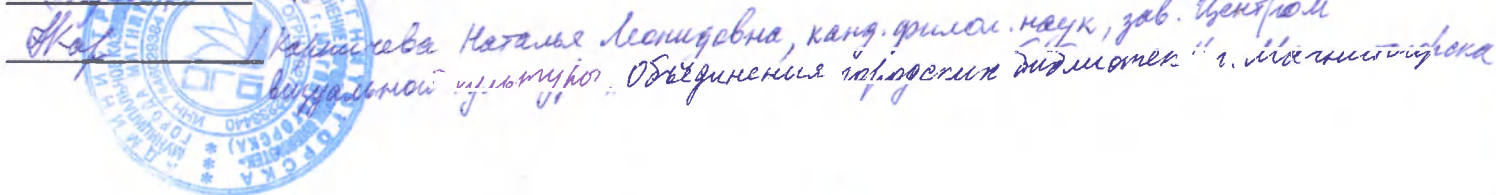 НКар / Карпичева Наталья Леонидовна, канд. филол. наук, зав. Центром
визуальной культуры "Объединения городских библиотек" г. Магнитогорска